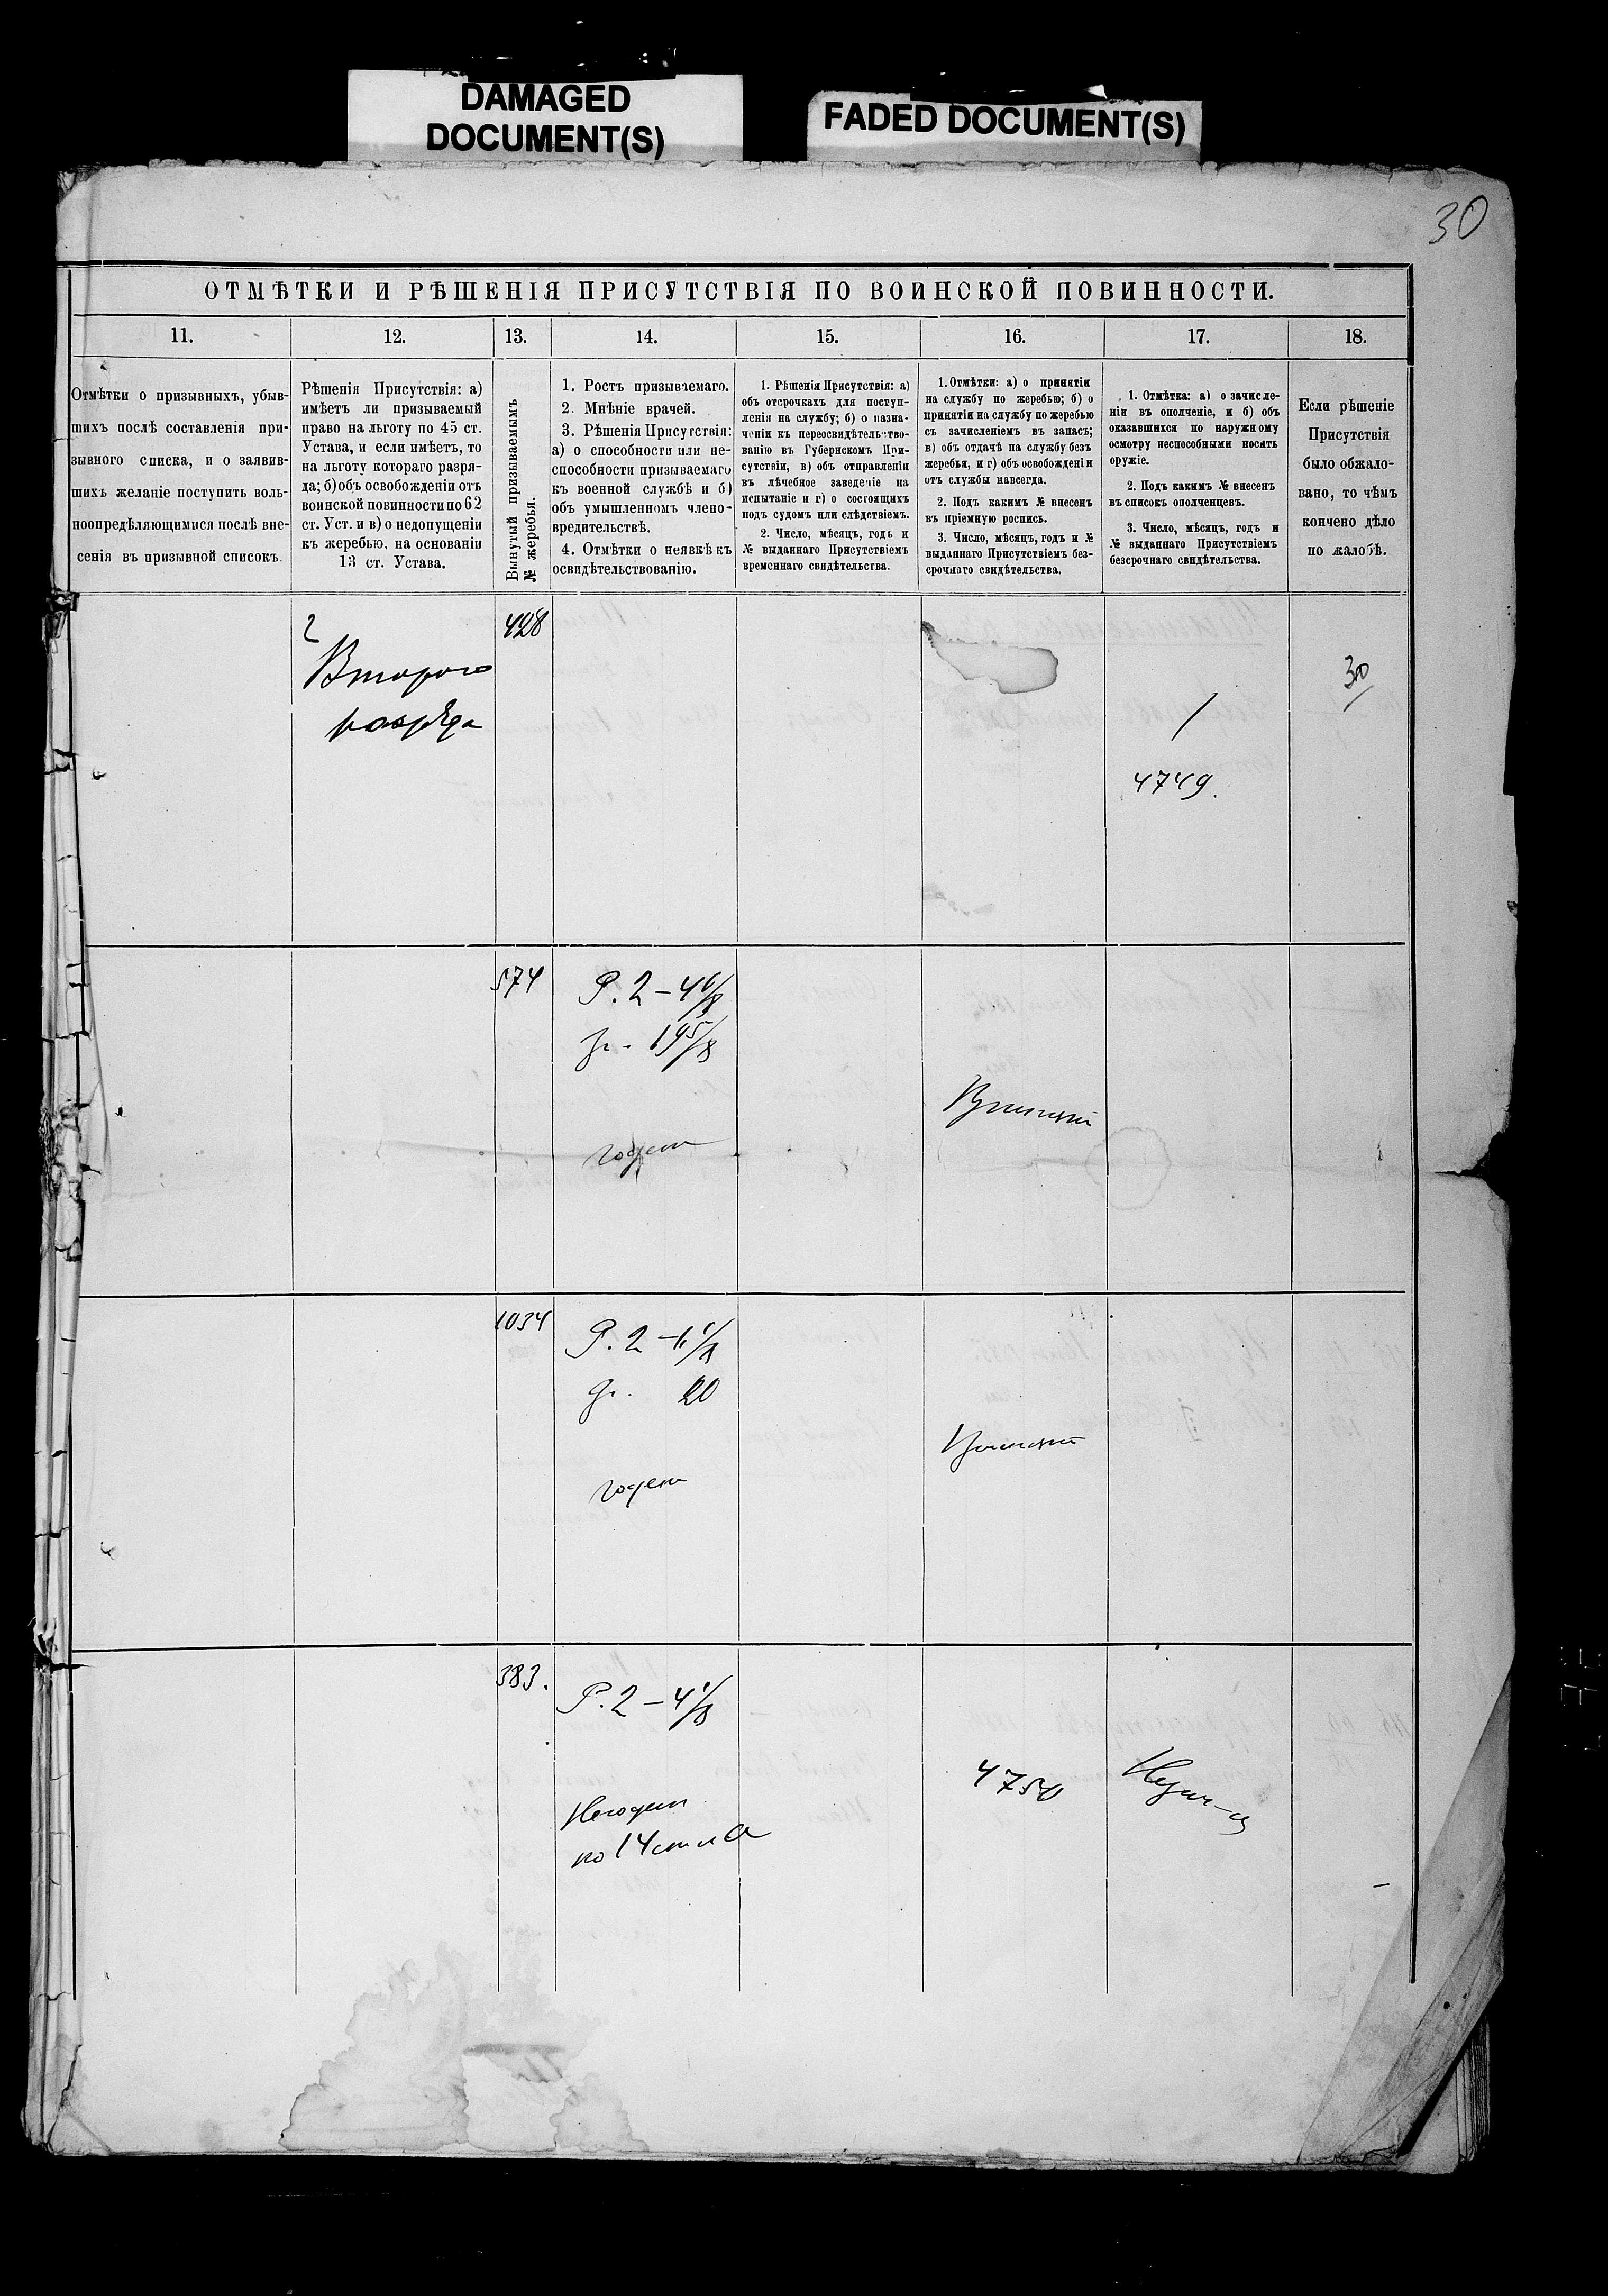 DAMAGED
DOCUMENT(S)
FADED DOCUMENT(S)
30
ОТМѢТКИ И РѢШЕНІЯ ПРИСУТСТВІЯ ПО ВОИНСКОЙ ПОВИННОСТИ.
11.
12.
13.
14.
15.
16.
17.
18.
Отмѣтки о призывныхъ, убыв-
шихъ послѣ составленія при-
зывного списка, и о заявив-
шихъ желаніе поступить воль-
ноопредѣляющимися послѣ вне-
сенія въ призывной списокъ.
Рѣшенія Присутствія: а)
имѣетъ ли призываемый
право на льготу по 45 ст.
Устава, и если имѣетъ, то
на льготу котораго разря-
да; б) объ освобожденіи отъ
воинской повинности по 62
ст. Уст. и в) о недопущеніи
къ жеребью, на основаніи
13 ст. Устава.
Вынутый призываемымъ
№ жеребья.
1. Ростъ призываемаго.
2. Мнѣніе врачей.
3. Рѣшенія Присутствія:
а) о способности или не-
способности призываемаго
къ военной службѣ и б)
объ умышленномъ члено-
вредительствѣ.
4. Отмѣтки о неявкѣ къ
освидѣтельствованію.
1. Рѣшенія Присутствія: а)
объ отсрочкахъ для поступ-
ленія на службу; б) о назна-
ченіи къ переосвидѣтельство-
ванію въ Губернскомъ При-
сутствіи, в) объ отправленіи
въ лѣчебное заведеніе на
испытаніе и г) о состоящихъ
подъ судомъ или слѣдствіемъ.
2. Число, мѣсяцъ, годъ и
№ выданнаго Присутствіемъ
временнаго свидѣтельства.
1. Отмѣтки: а) о принятіи
на службу по жеребью; б) о
принятіи на службу по жеребью
съ зачисленіемъ въ запасъ;
в) объ отдачѣ на службу безъ
жеребья, и г) объ освобожденіи
отъ службы навсегда.
2. Подъ какимъ № внесенъ
въ пріемную роспись.
3. Число, мѣсяцъ, годъ и №
выданнаго Присутствіемъ без-
срочнаго свидѣтельства.
1. Отмѣтка: а) о зачисле-
ніи въ ополченіе, и б) объ
оказавшихся по наружному
осмотру неспособными носить
оружіе.
2. Подъ какимъ № внесенъ
въ списокъ ополченцевъ.
3. Число, мѣсяцъ, годъ и
№ выданнаго Присутствіемъ
безсрочнаго свидѣтельства.
Если рѣшеніе
Присутствія
было обжало-
вано, то чѣмъ
кончено дѣло
по жалобѣ.
2
Второго
разряда
428
4749.
30
574
Р. 2 – 4 6/8
гр. 19 5/8
годен
Принят
1034
Р. 2 –
гр. 20
годен
Принят
383.
Р. 2 – 4 1/8
Негоден
по 14 ст. л А
4750